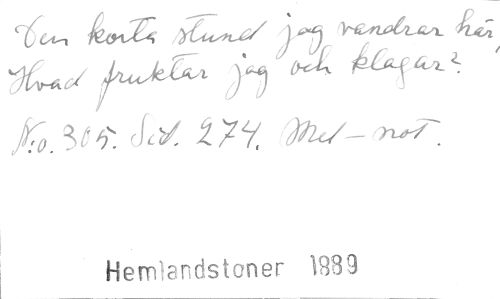 Den korta stund jag vandrar här,
Hvad fruktar jag och klagar?
N:o. 305. Sid. 274. Med - not.
Hemlandstoner 1889